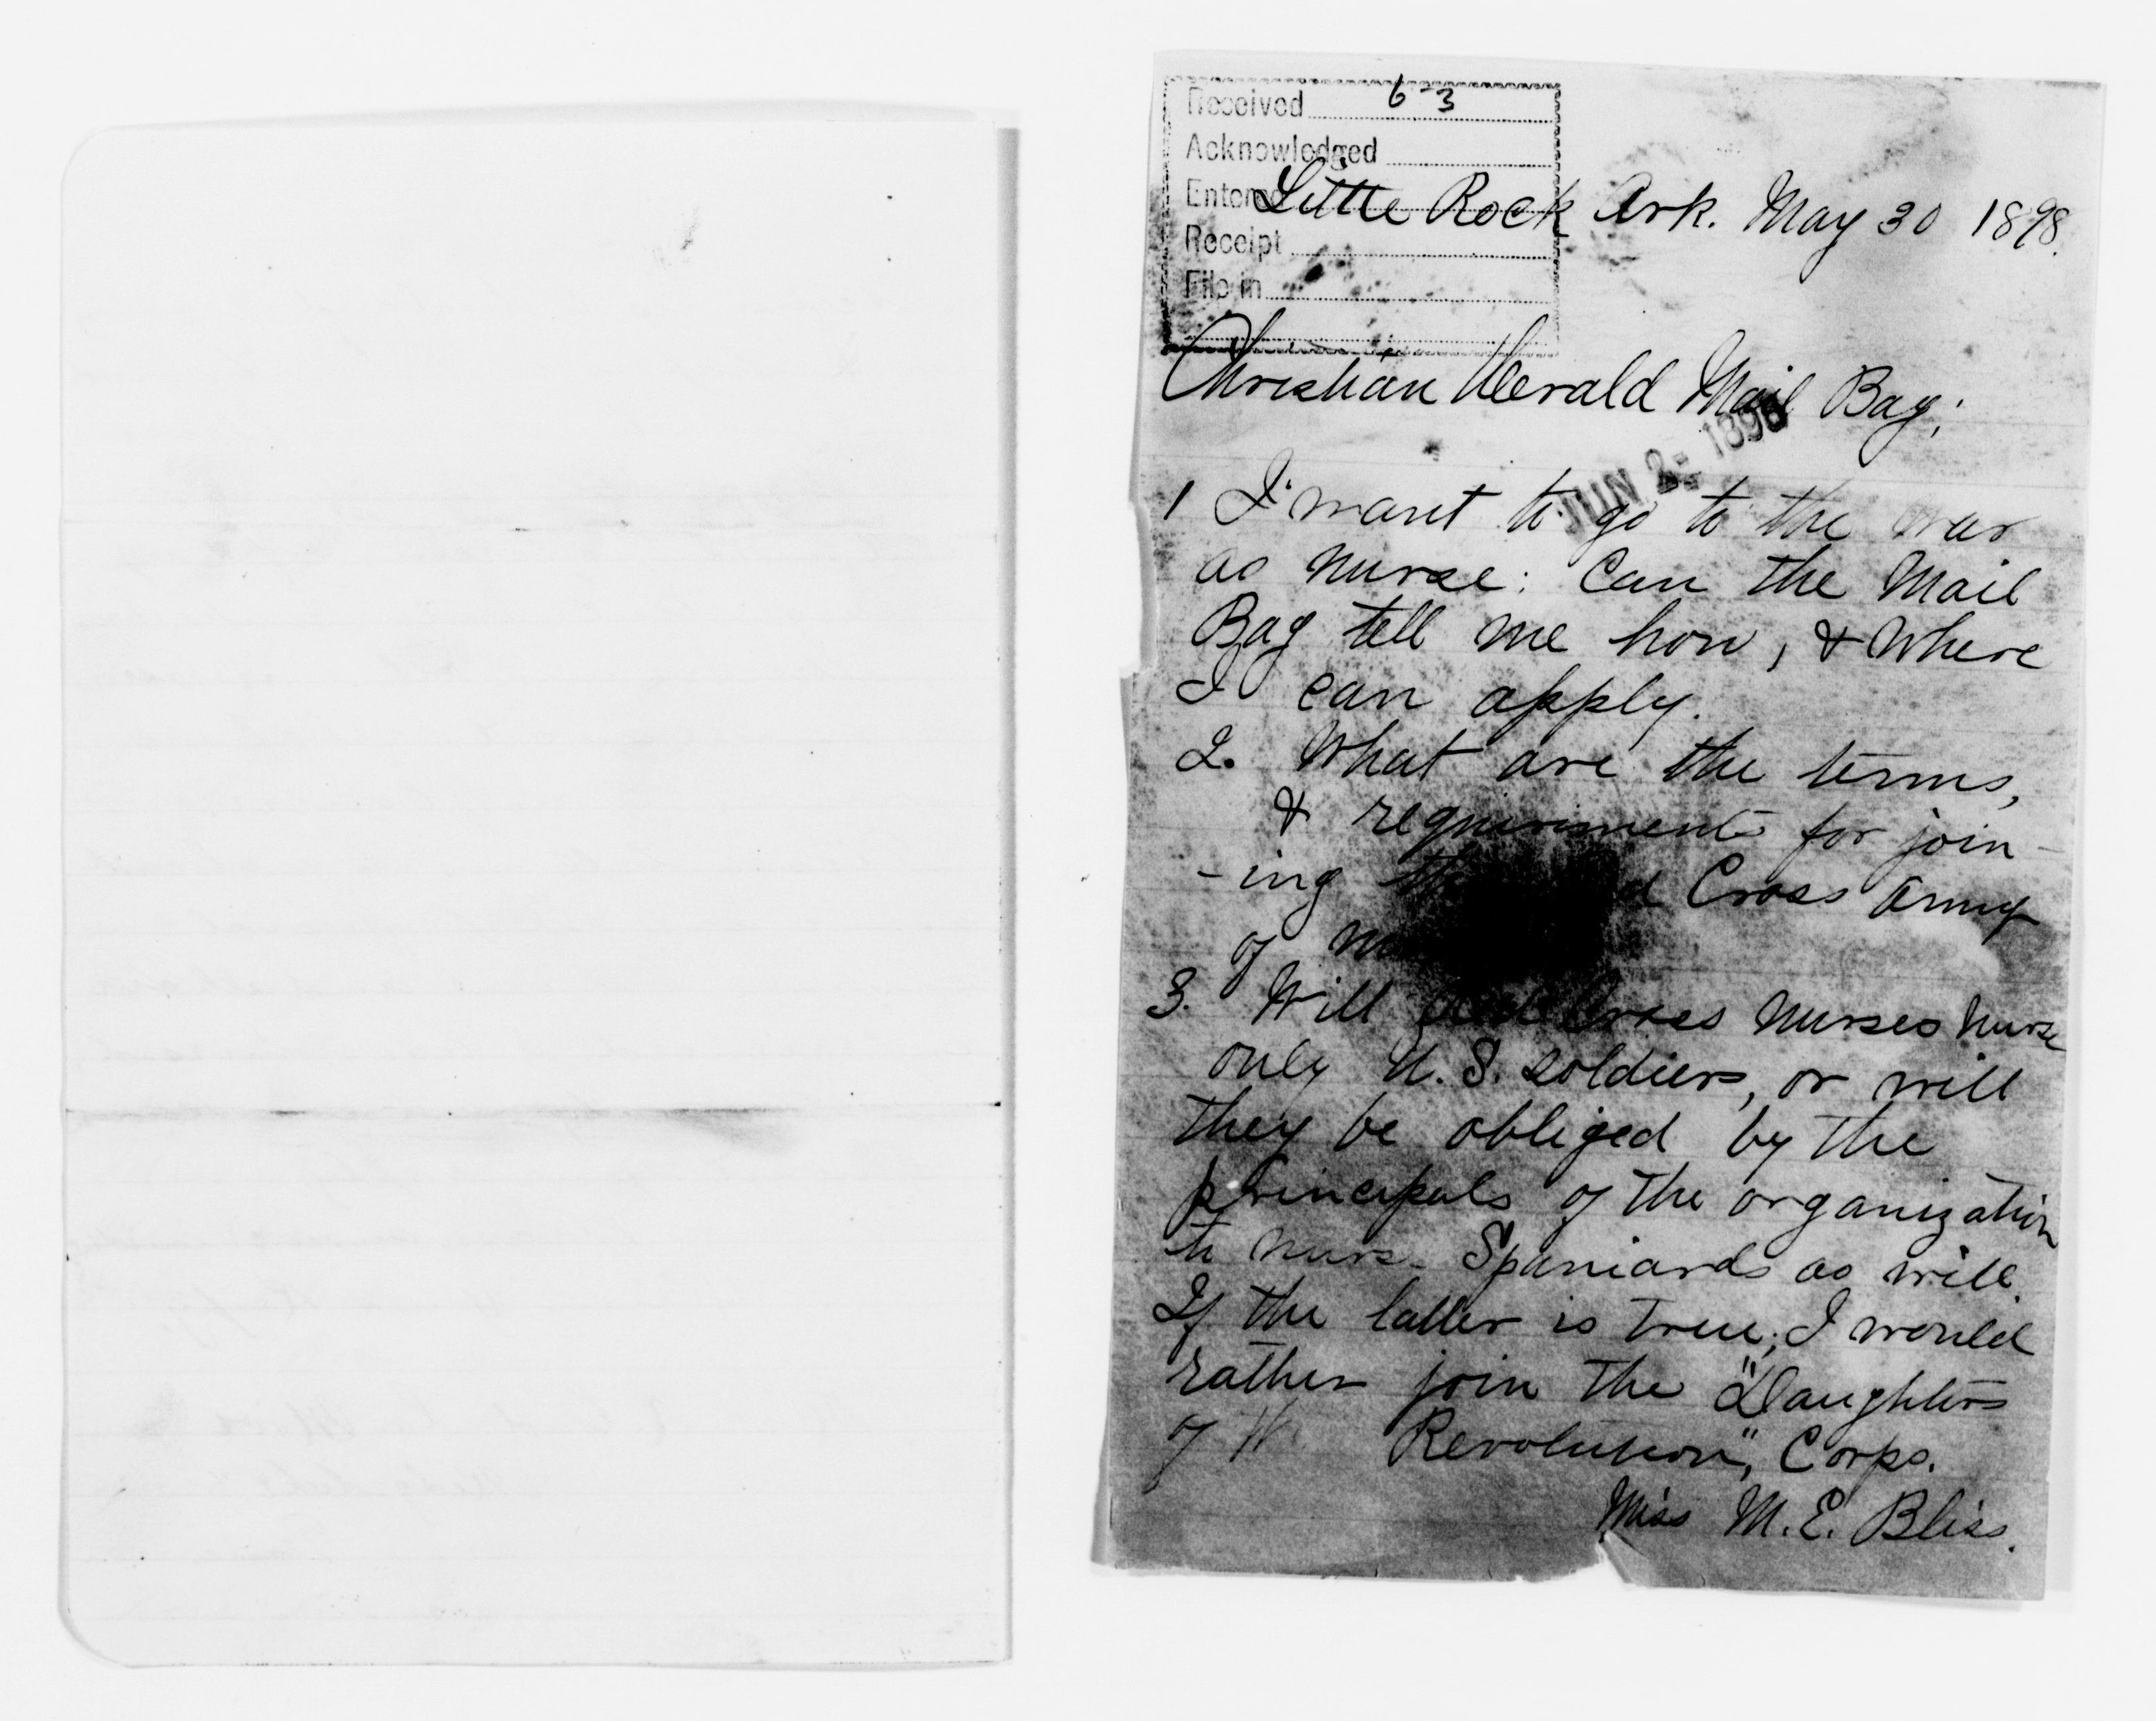 Received 6-3
Acknowledged
Entered
Receipt
File in
Little Rock Ark. May 30 1898.
Christian Herald Mail Bag;
JUN 2- 1898
1 I want to go to the war
as nurse: Can the Mail
Bag tell me how, & where
I can apply.
2. What are the terms,
& requiriments for join-
-ing the Cross Army
of
3. Will Red Cross Nurses nurse
only U.S. soldiers, or will
they be obliged by the
principals of the organization
to nurse Spaniards as well.
If the latter is true; I would
rather join the "Daughters
of Revolution", Corps.
Miss M. E. Bliss.